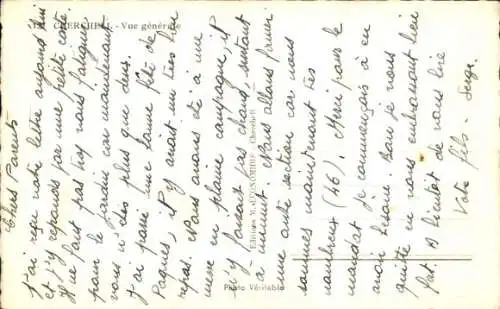 CHERCHELL - Vue générale
Chers Parents
J'ai reçu votre lettre aujourd'hui
et j'y réponds par une petite carte.
Il ne faut pas trop vous fatiguer
pour le jardin car maintenant
vous n'êtes plus que deux.
J'ai passé une bonne fête de
Pâques, il y avait un très bon
repas. Nous avons été à une
messe en pleine campagne, et
il y faisait pas chaud, surtout
à minuit. Nous allons former
une autre section car nous
sommes maintenant très
nombreux (46). Merci pour le
mandat je commençais à en
avoir besoin. Bon je vous
quitte en vous embrassant bien
fort. A bientôt de vous lire
Votre fils - Serge.
Photo Véritable